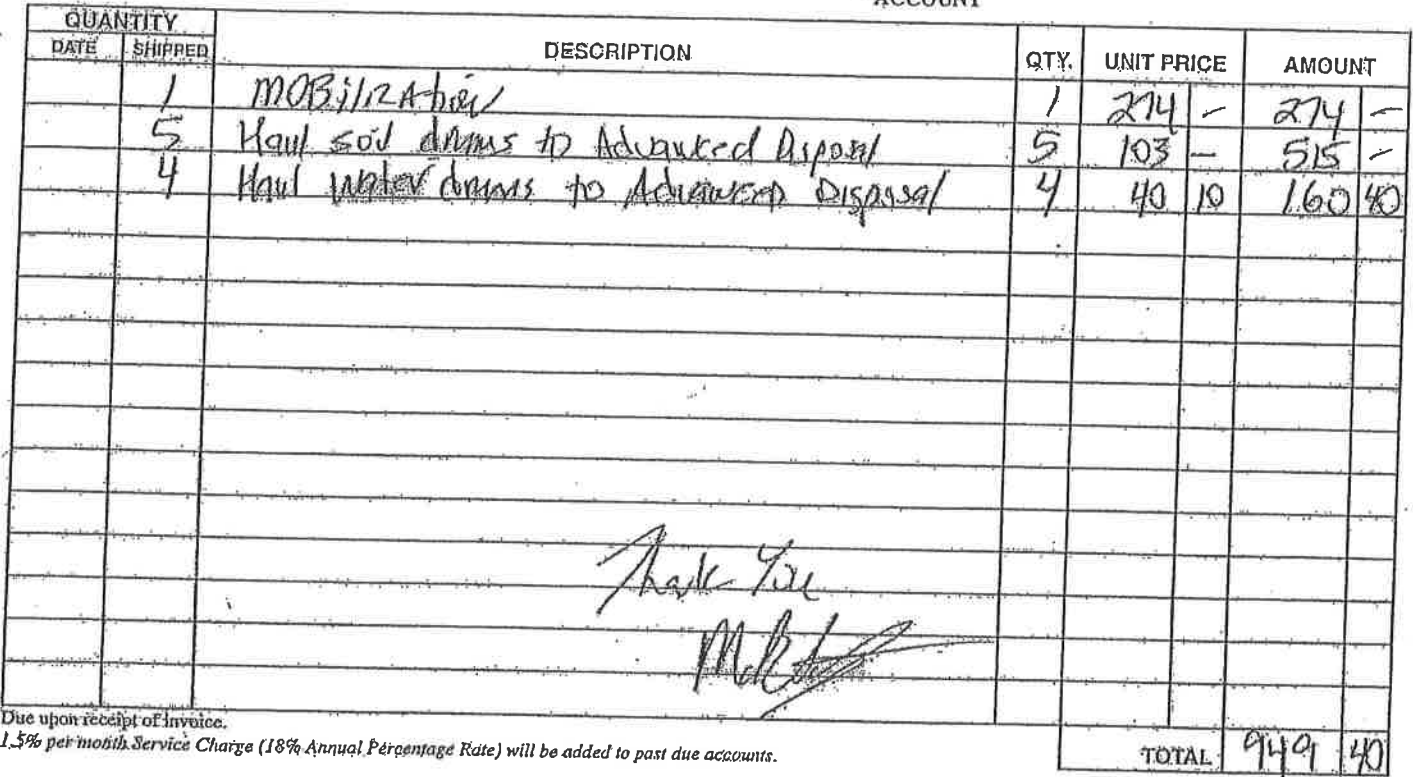 ACCOUNT
QUANTITY
DATE SHIPPED DESCRIPTION QTY. UNIT PRICE AMOUNT
1 MOBilizAtion 1 274 - 274 -
5 Haul soil drums to Advanced Disposal 5 103 - 515 -
4 Haul water drums to Advanced Disposal 4 40 10 160 40
Thank You
Due upon receipt of invoice.
1.5% per month Service Charge (18% Annual Percentage Rate) will be added to past due accounts.
TOTAL 949 40